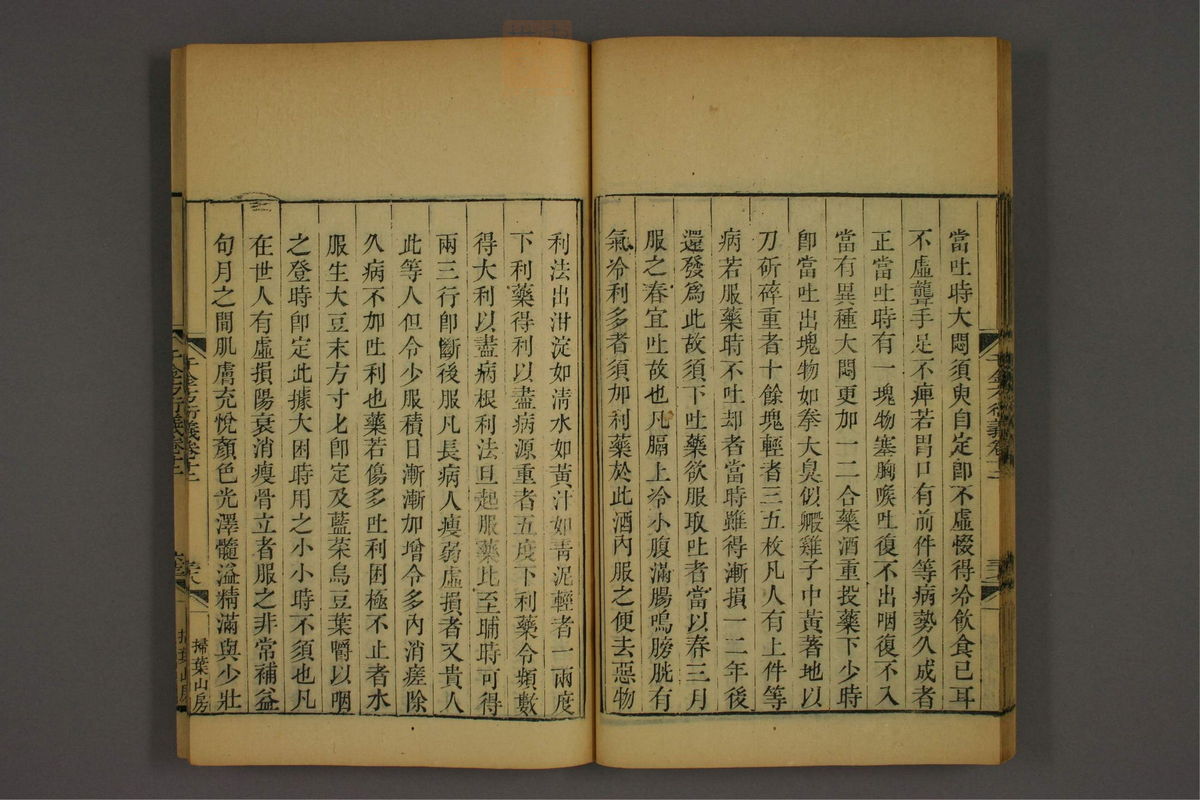 當吐時大悶須臾自定即不虛惙得冷飲食已耳
不虛聾手足不痺若胃口有前件等病勢久成者
正當吐時有一塊物塞胸喉吐復不出咽復不入
當有異種大悶更加一二合藥酒重投藥下少時
卽當吐出塊物如拳大臭似毈雞子中黃著地以
刀斫碎重者十餘塊輕者三五枚凡人有上件等
病若服藥時不吐却者當時雖得漸損一二年後
還發爲此故須下吐藥欲服取吐者當以春三月
服之春宜吐故也凡膈上冷小腹滿腸鳴膀胱有
氣冷利多者須加利藥於此酒內服之便去惡物
利法出泔淀如清水如黃汁如青泥輕者一兩度
下利藥得利以盡病源重者五度下利藥令頻數
得大利以盡病根利法旦起服藥比至晡時可得
兩三行卽斷後服凡長病人瘦弱虛損者又貴人
此等人但令少服積日漸漸加增令多內消瘥除
久病不加吐利也藥若傷多吐利困極不止者水
服生大豆末方寸匕卽定及藍葉烏豆葉嚼以咽
之登時卽定此據大困時用之小小時不須也凡
在世人有虛損陽衰消瘦骨立者服之非常補益
旬月之間肌膚充悅顏色光澤髓溢精滿與少壯
千金方衍義卷十二
掃葉山房